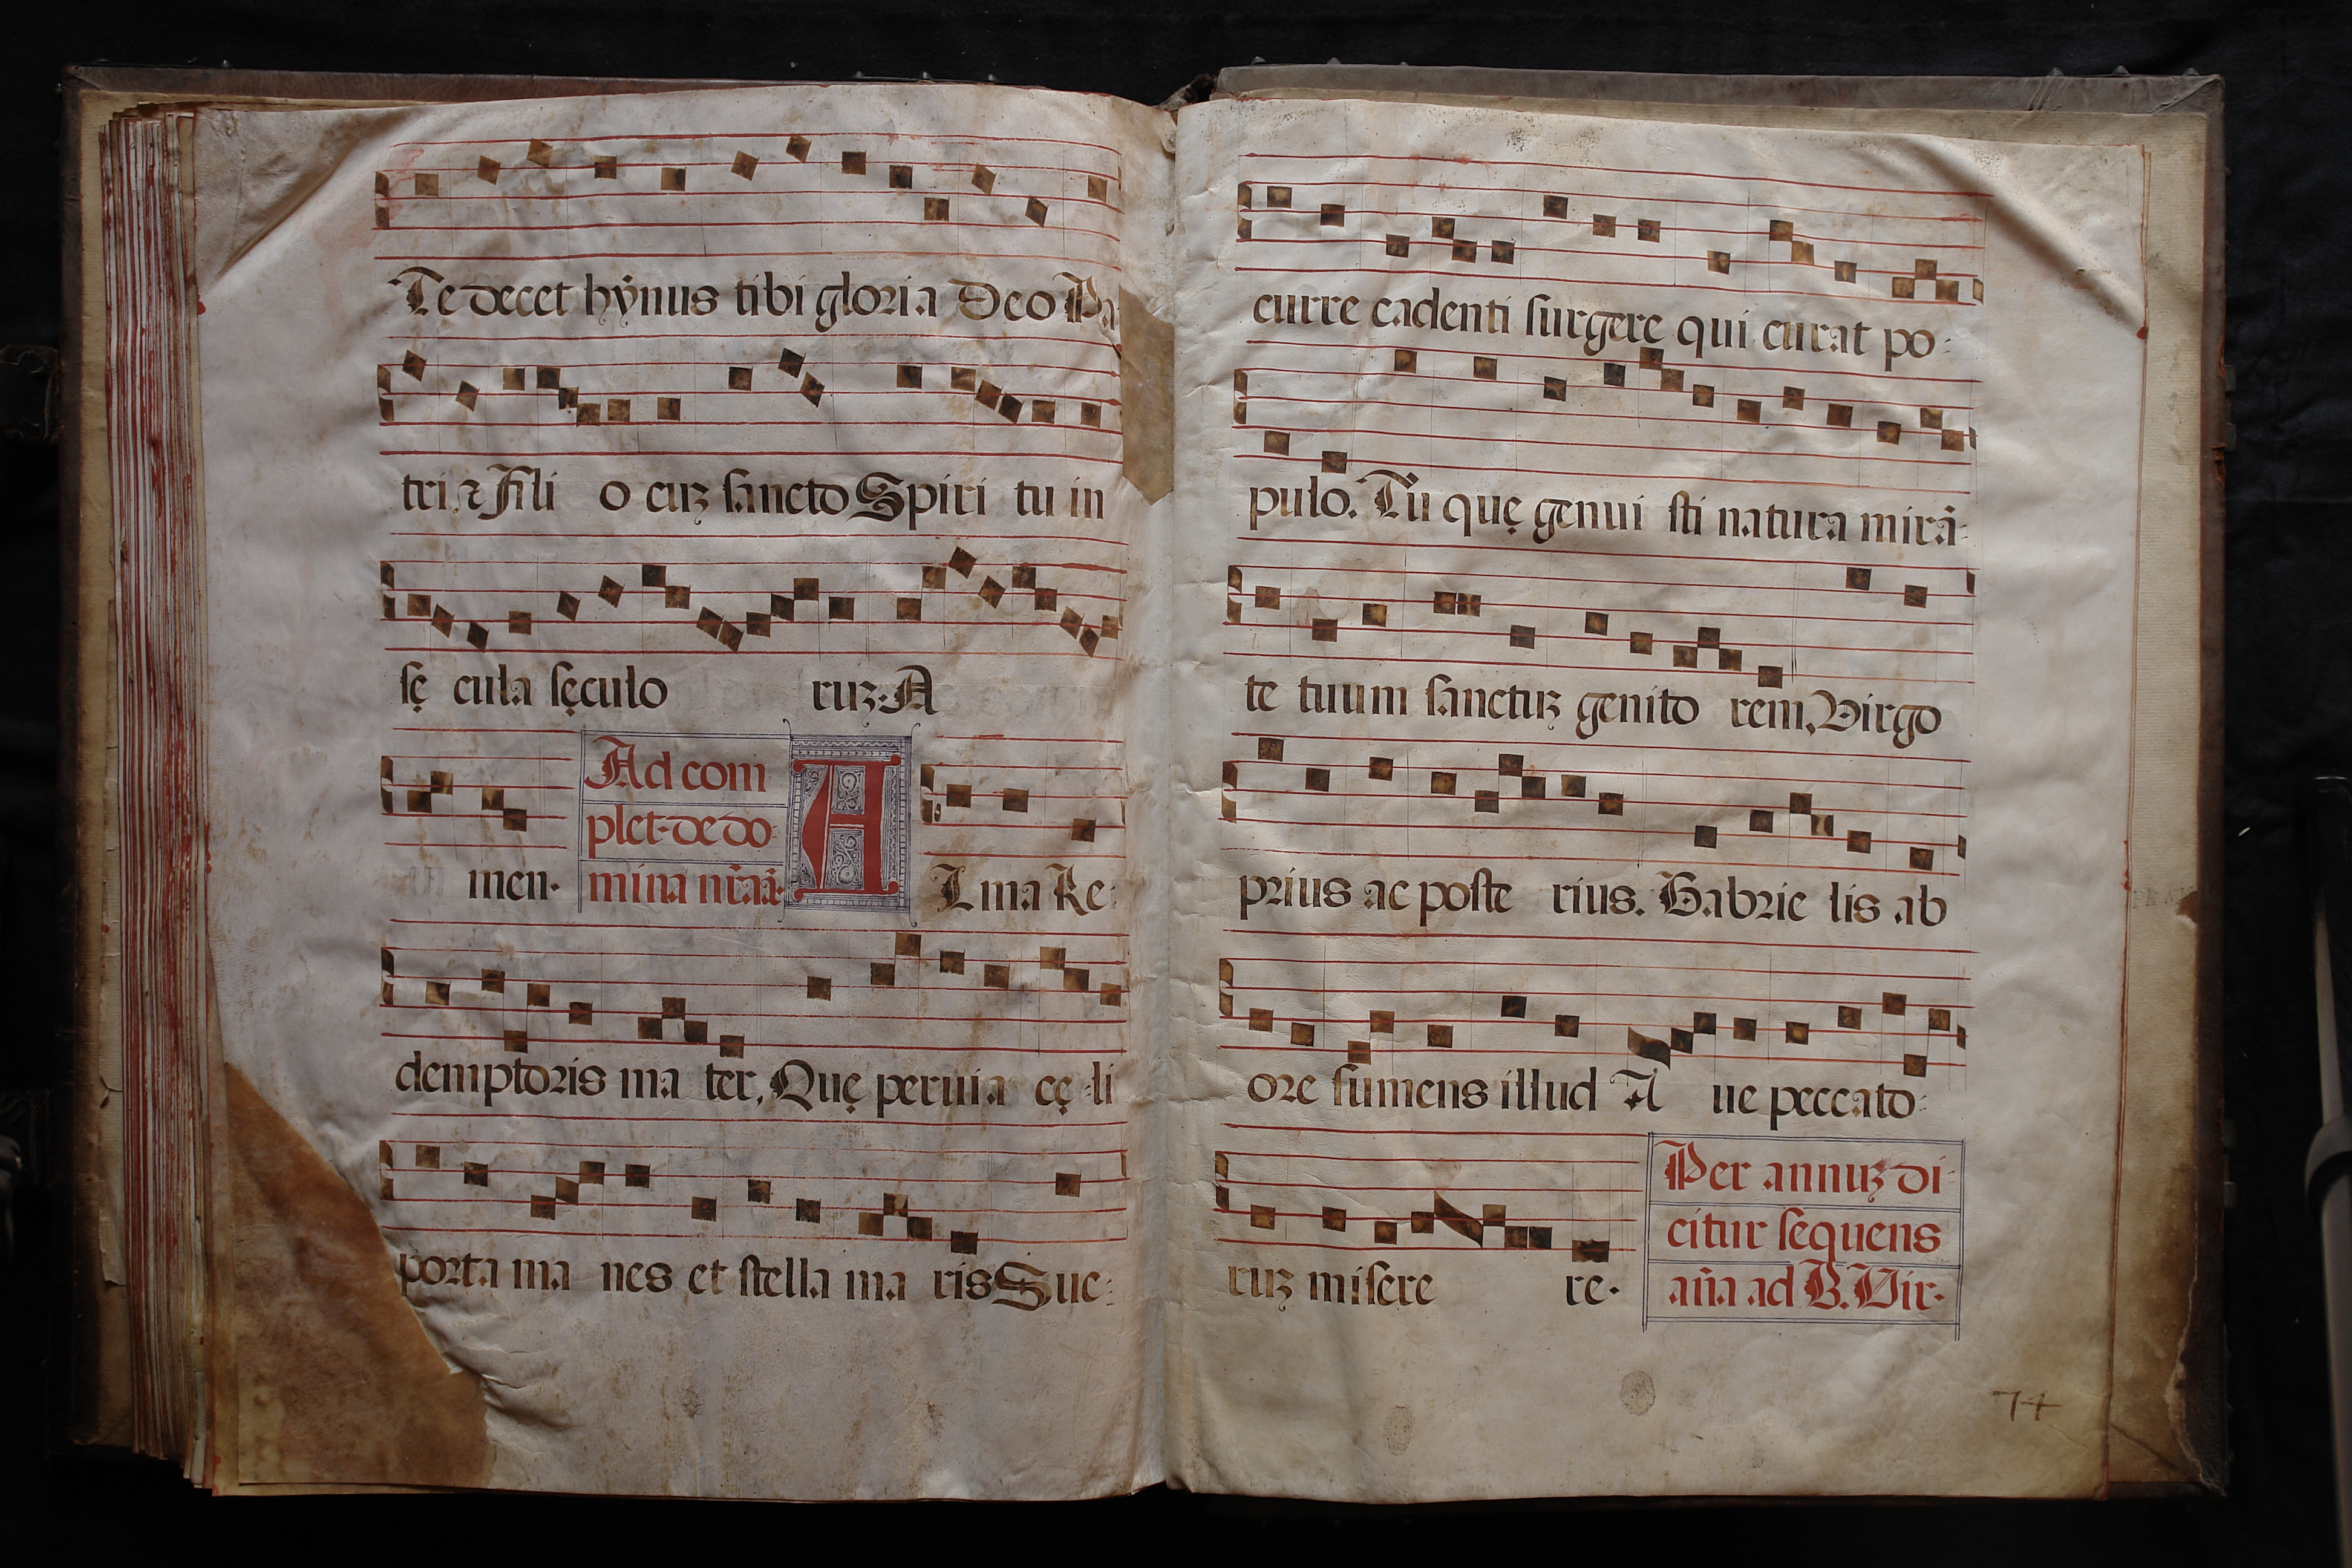 Te decet hẏnus tibi gloria Deo Pa
tri ⁊ Fili o cuꝫ sancto Spiri tu in
sę cula sęculo ruꝫ. A
men.
Ad com
plet. de do-
mina nr̃a añ.
A
Lma Re-
demptoris ma ter, Quę peruia cę li
porta ma nes et stella ma ris Suc-
curre cadenti surgere qui curat po-
pulo. Tu quę genui sti natura mirã-
te tuum sanctuꝫ genito rem, Virgo
prius ac poste rius. Gabrie lis ab
ore sumens illud A ue peccato-
ruꝫ misere re.
Per annuꝫ di-
citur sequens
añа ad B. Vir-
74